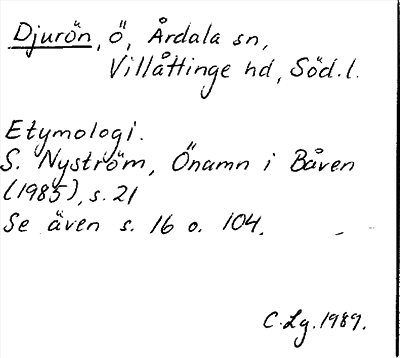 Djurön, ö, Årdala sn,
Villåttinge hd, Söd.l.
Etymologi.
S. Nyström, Önamn i Båven
(1985), s. 21
Se även s. 16 o. 104.
C. Lg. 1989.